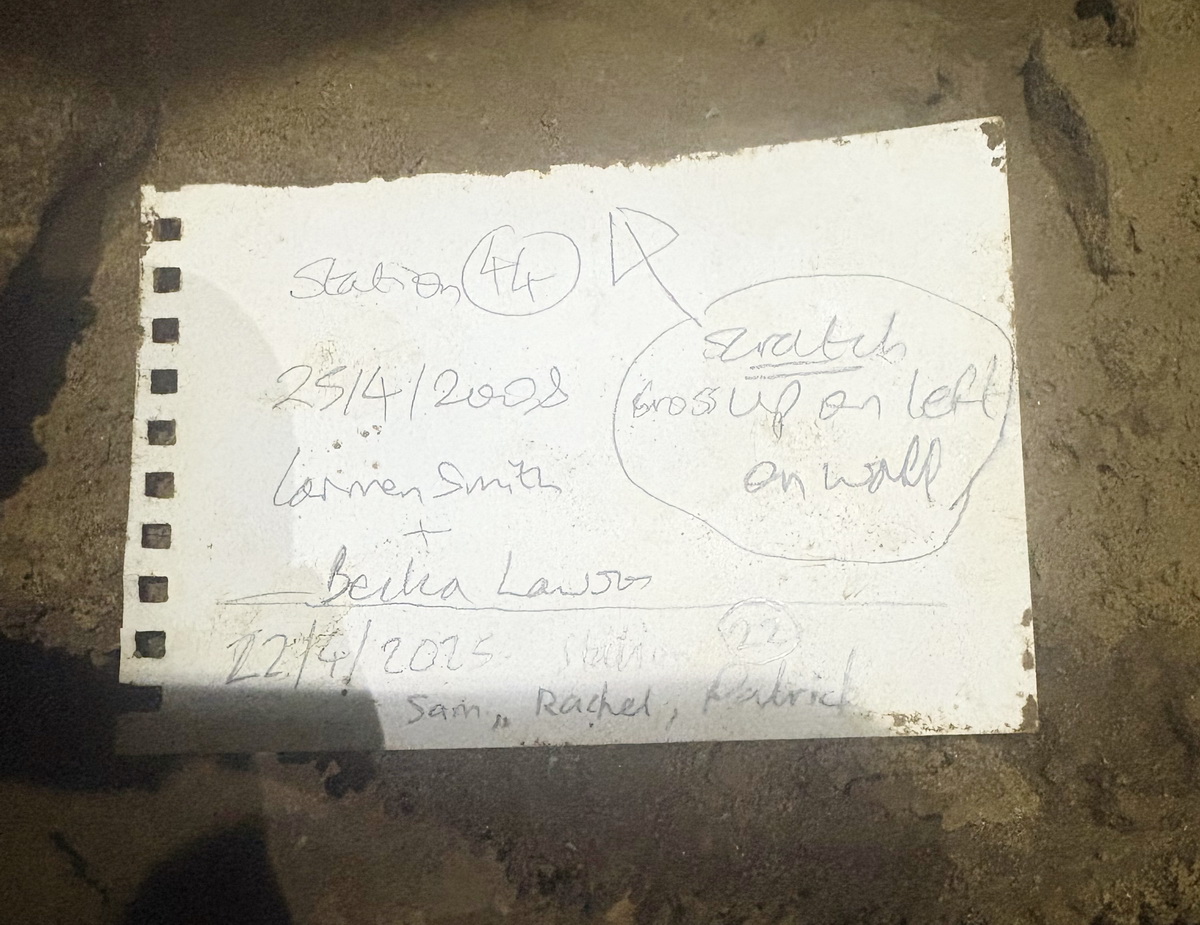 Station 44
25/4/2008
Carmen Smith
+
Becka Lawson
scratch
cross up on left
on wall
22/4/2025 Station 22
Sam, Rachel, Patrick